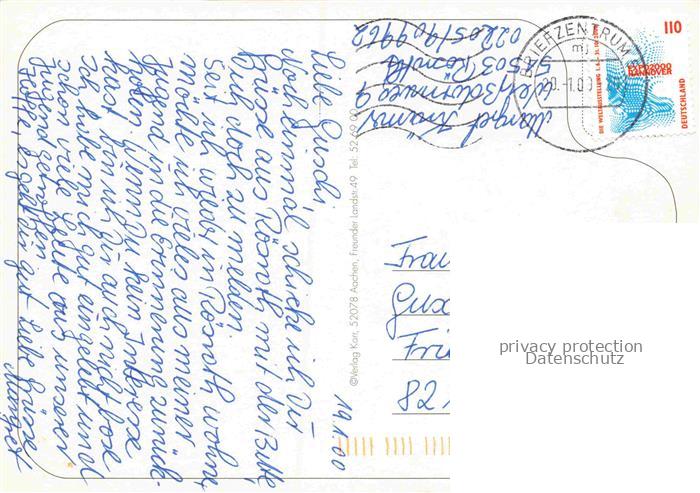 19.1.00
Liebe Guschi,
Noch einmal schicke ich Dir
Grüsse aus Rösrath mit der Bitte,
Dich doch zu melden.
Seit ich wieder in Rösrath wohne,
möchte ich vieles aus meiner
Jugend in die Erinnerung zurück-
holen. Wenn Du kein Interesse
hast, bin ich Dir auch nicht böse.
Ich habe mich gut eingelebt und
schon viele Leute aus unserer
Jugend getroffen.
Hoffe, es geht Dir gut. Liebe Grüsse
Margret
©Verlag Korr, 52078 Aachen, Freunder Landstr. 49 Tel: 52 69 02
Margret
51503 Rösrath
02205/909962
BRIEFZENTRUM
110
EXPO2000
HANNOVER
DIE WELTAUSSTELLUNG 1.6.-31.10.2000
DEUTSCHLAND
Frau
Gux
Fri
82
privacy protection
Datenschutz